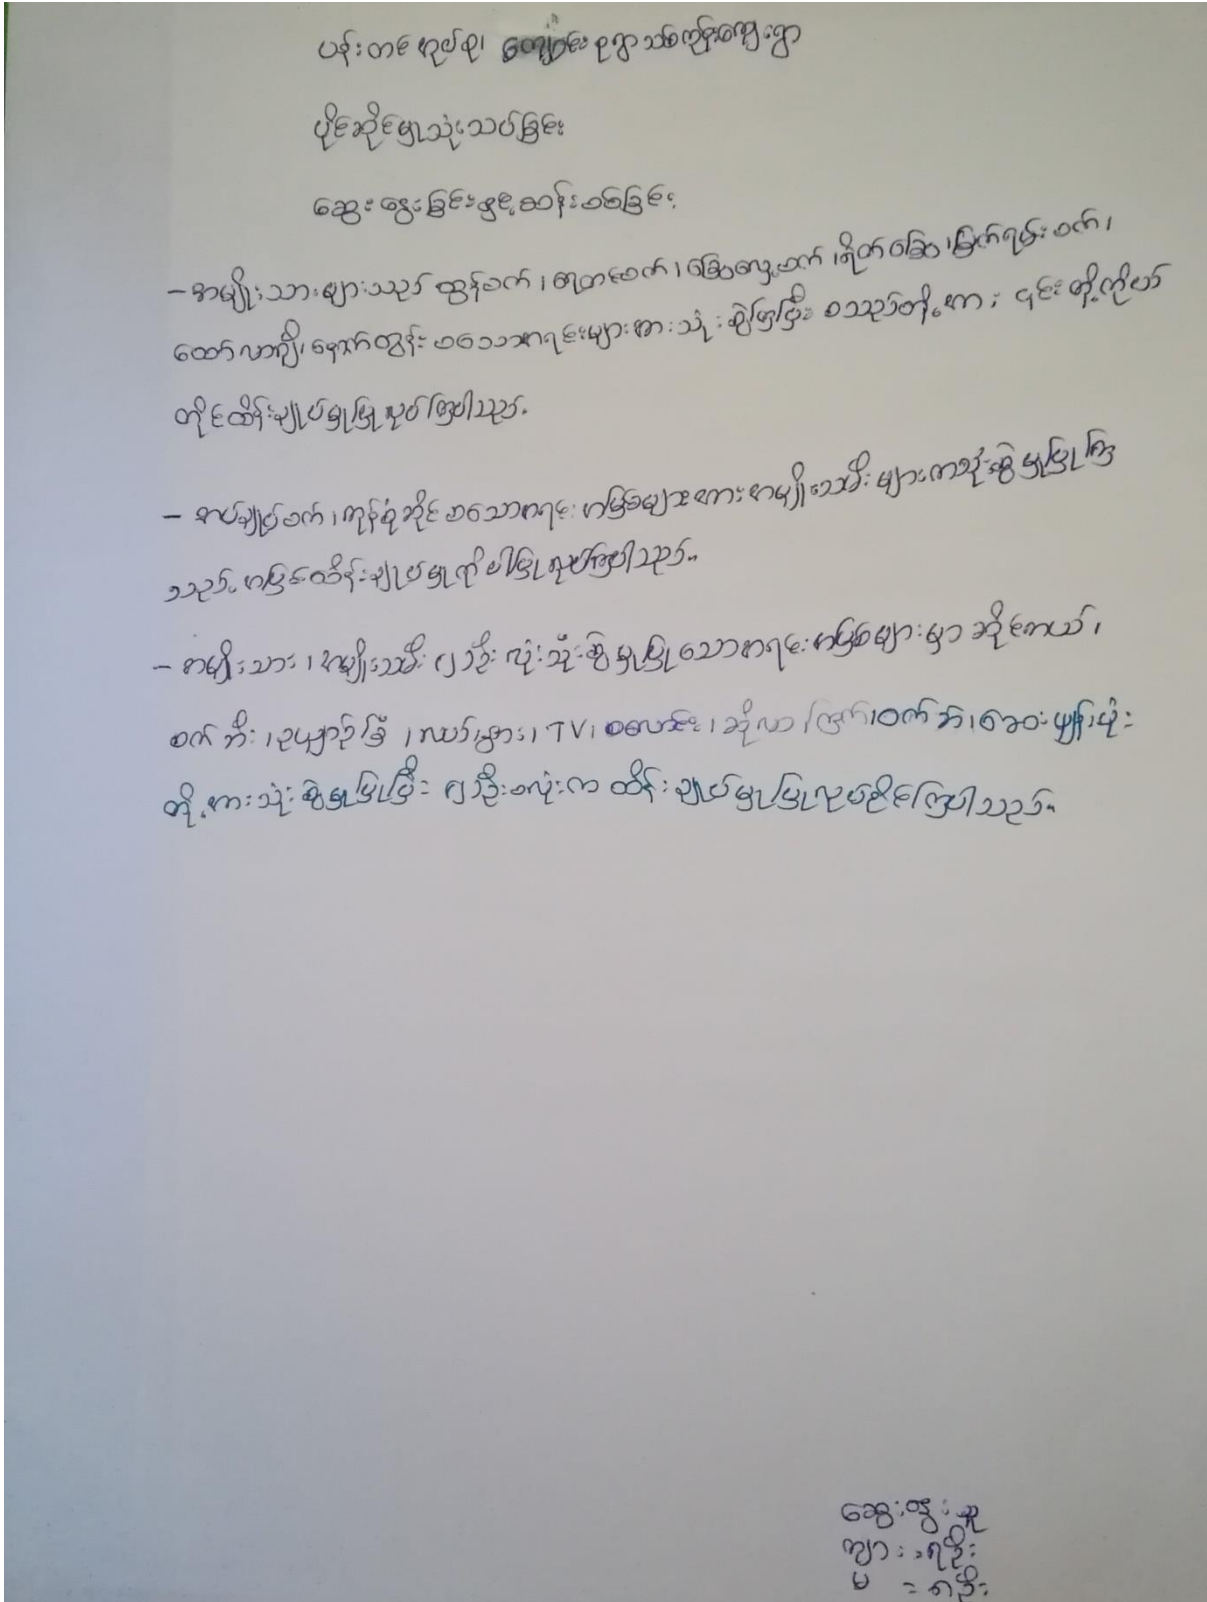 ပန်းတင်အုပ်စု၊ ကျေးရွာ
ပိုင်ဆိုင်မှုသုံးသပ်ခြင်း
ဆွေးနွေးခြင်းနှင့်ဆန်းစစ်ခြင်း
- အမျိုးသားများသည် ထွန်စက်၊ ရေတင်စက်၊ ခြွေလှေ့စက်၊ ရိတ်ခြွေ၊ မြက်ရမ်းစက်၊
ထော်လာဂျီ၊ နောက်တွန်း စသောအရင်းများအား သုံးစွဲကြပြီး စသည်တို့အား ၎င်းတို့ကိုယ်
တိုင်ထိန်းချုပ်မှုပြုလုပ်ကြပါသည်။
- အပ်ချုပ်စက်၊ ကုန်စုံဆိုင် စသောအရင်းအမြစ်များအား အမျိုးသမီးများကသုံးစွဲမှုပြုကြ
သည့်အပြင်ထိန်းချုပ်မှုကိုပါပြုလုပ်ကြပါသည်။
- အမျိုးသား၊ အမျိုးသမီး ၂ဦးလုံးသုံးစွဲမှုပြုသောအရင်းအမြစ်များမှာ ဆိုင်ကယ်၊
စက်ဘီး၊ ဥယျာဉ်ခြံ၊ ယာ၊ နွား၊ TV၊ စလောင်း၊ ဆိုလာ၊ ကြက်၊ ဝက်ဘဲ၊ ဖုန်း
တို့အားသုံးစွဲမှုပြုပြီး ၂ဦးစလုံးက ထိန်းချုပ်မှုပြုလုပ်နိုင်ကြပါသည်။
ဆွေးနွေးသူ
ကျား = ရဦး
မ = ၈ဦး